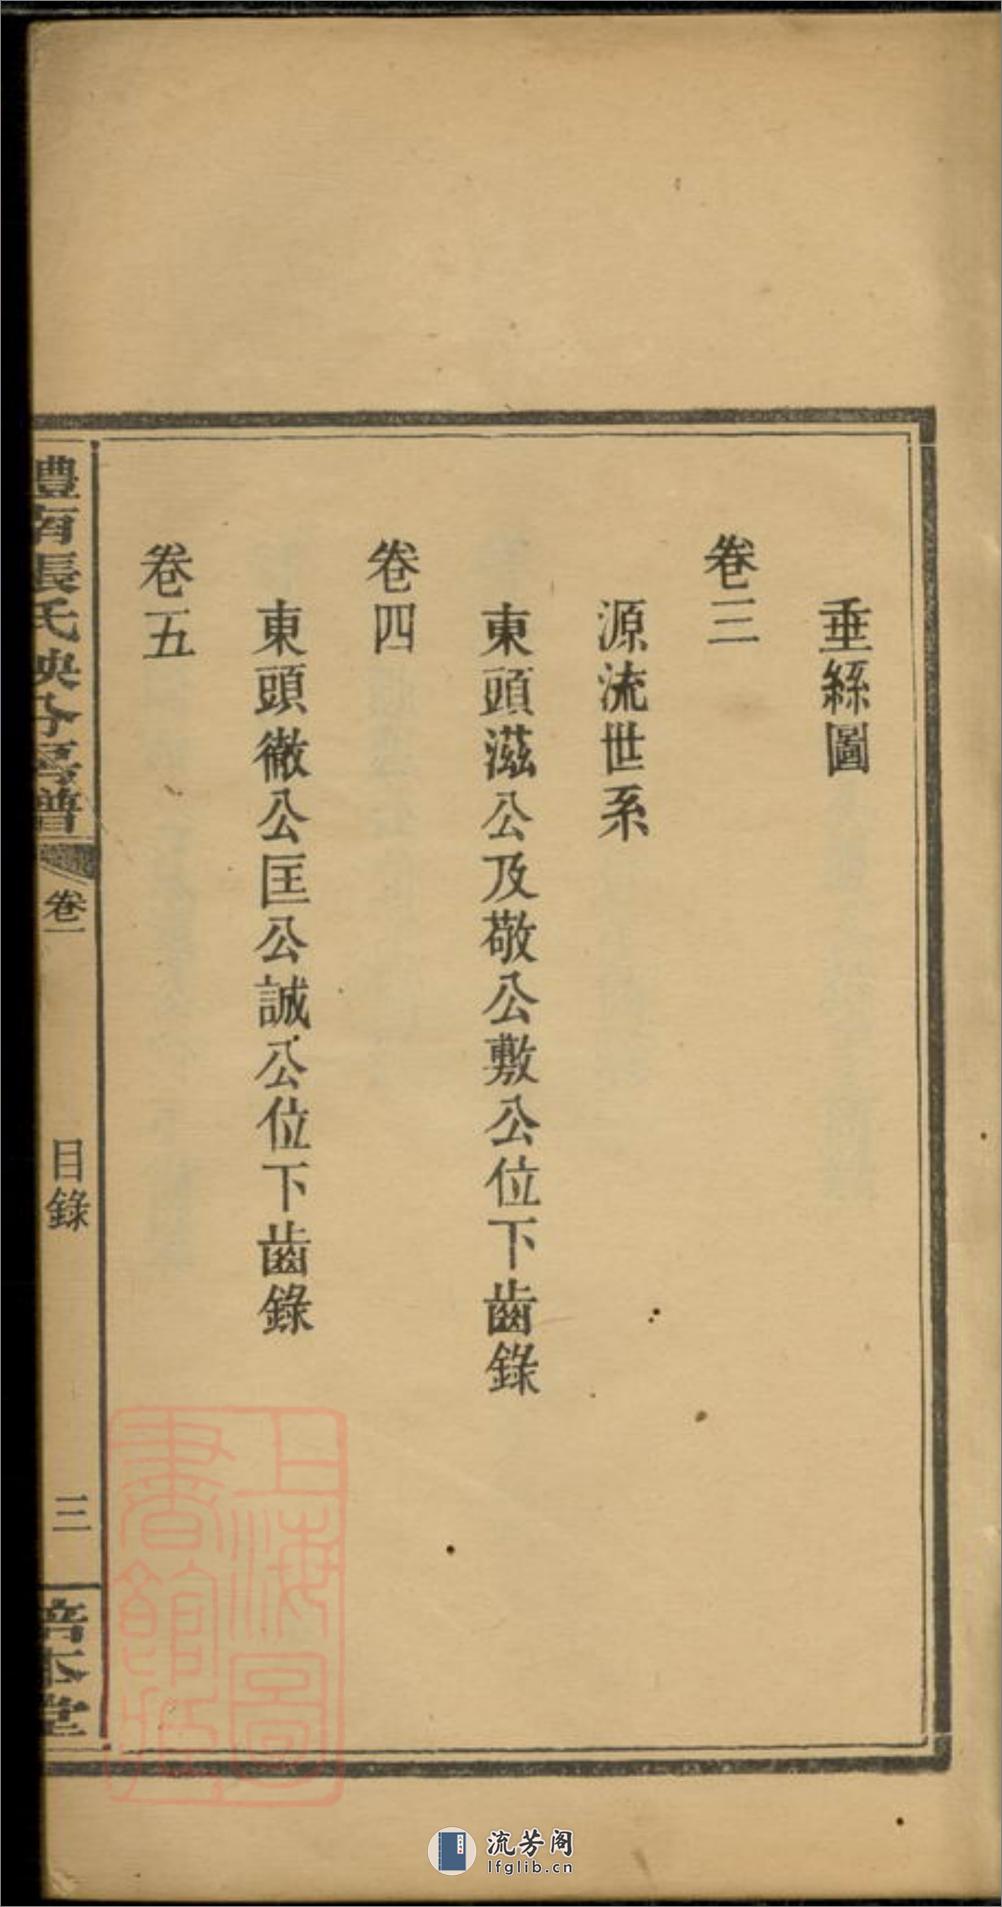 垂絲圖
卷三
源流世系
東頭滋公及敬公敷公位下齒錄
卷四
東頭徹公匡公誠公位下齒錄
卷五
澧南張氏映分房譜
卷一
目錄
三
培本堂
上海圖書館藏
流芳阁
lfglib.cn